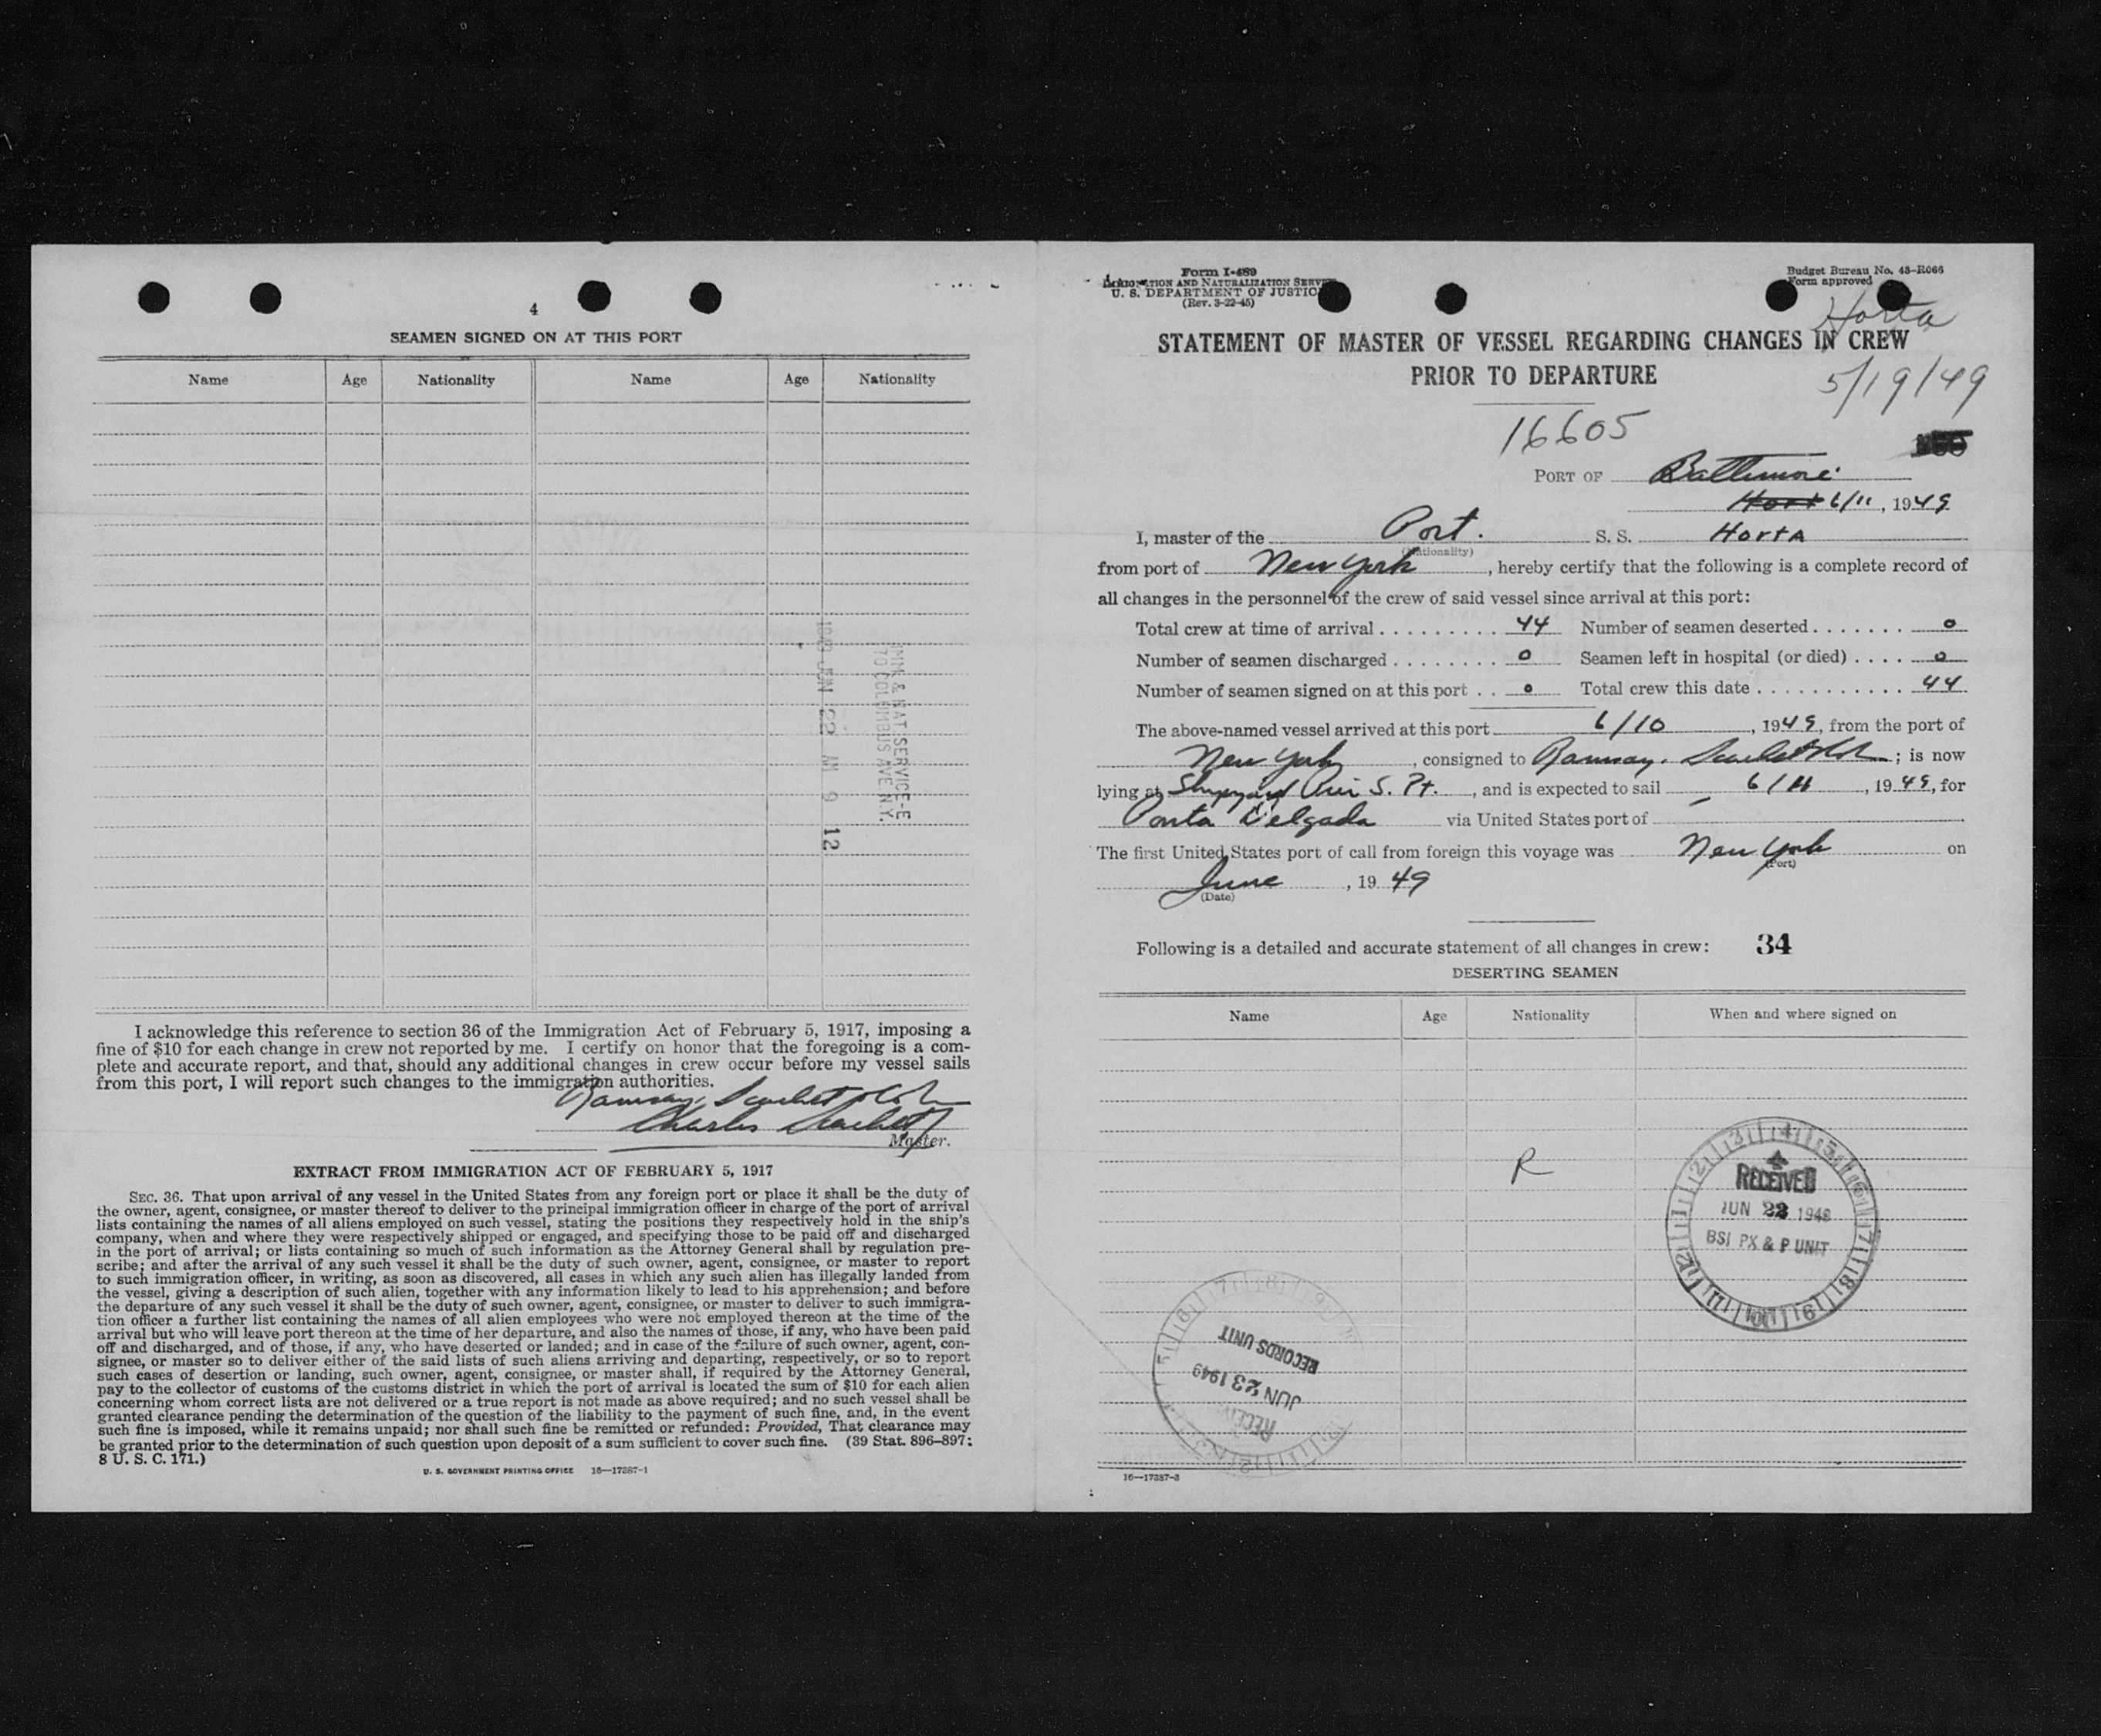 4
SEAMEN SIGNED ON AT THIS PORT
Name Age Nationality Name Age Nationality
1949 JUN 22 AM 9 12
IMM. & NAT. SERVICE-E
70 COLUMBUS AVE N.Y.
I acknowledge this reference to section 36 of the Immigration Act of February 5, 1917, imposing a
fine of $10 for each change in crew not reported by me. I certify on honor that the foregoing is a com-
plete and accurate report, and that, should any additional changes in crew occur before my vessel sails
from this port, I will report such changes to the immigration authorities.
Ramsay, Scarlett & Co
Charles Scarlett
Master.
EXTRACT FROM IMMIGRATION ACT OF FEBRUARY 5, 1917
SEC. 36. That upon arrival of any vessel in the United States from any foreign port or place it shall be the duty of
the owner, agent, consignee, or master thereof to deliver to the principal immigration officer in charge of the port of arrival
lists containing the names of all aliens employed on such vessel, stating the positions they respectively hold in the ship's
company, when and where they were respectively shipped or engaged, and specifying those to be paid off and discharged
in the port of arrival; or lists containing so much of such information as the Attorney General shall by regulation pre-
scribe; and after the arrival of any such vessel it shall be the duty of such owner, agent, consignee, or master to report
to such immigration officer, in writing, as soon as discovered, all cases in which any such alien has illegally landed from
the vessel, giving a description of such alien, together with any information likely to lead to his apprehension; and before
the departure of any such vessel it shall be the duty of such owner, agent, consignee, or master to deliver to such immigra-
tion officer a further list containing the names of all alien employees who were not employed thereon at the time of the
arrival but who will leave port thereon at the time of her departure, and also the names of those, if any, who have been paid
off and discharged, and of those, if any, who have deserted or landed; and in case of the failure of such owner, agent, con-
signee, or master so to deliver either of the said lists of such aliens arriving and departing, respectively, or so to report
such cases of desertion or landing, such owner, agent, consignee, or master shall, if required by the Attorney General,
pay to the collector of customs of the customs district in which the port of arrival is located the sum of $10 for each alien
concerning whom correct lists are not delivered or a true report is not made as above required; and no such vessel shall be
granted clearance pending the determination of the question of the liability to the payment of such fine, and, in the event
such fine is imposed, while it remains unpaid; nor shall such fine be remitted or refunded: Provided, That clearance may
be granted prior to the determination of such question upon deposit of a sum sufficient to cover such fine. (39 Stat. 896-897;
8 U. S. C. 171.)
U. S. GOVERNMENT PRINTING OFFICE 16—17387-1
Form I-489
IMMIGRATION AND NATURALIZATION SERVICE
U. S. DEPARTMENT OF JUSTICE
(Rev. 3-22-45)
Budget Bureau No. 43-R066
Form approved
Horta
STATEMENT OF MASTER OF VESSEL REGARDING CHANGES IN CREW
PRIOR TO DEPARTURE
5/19/49
16605
PORT OF Baltimore
6/11, 1949
I, master of the Port. S. S. Horta
(Nationality)
from port of New York, hereby certify that the following is a complete record of
all changes in the personnel of the crew of said vessel since arrival at this port:
Total crew at time of arrival 44 Number of seamen deserted 0
Number of seamen discharged 0 Seamen left in hospital (or died) 0
Number of seamen signed on at this port 0 Total crew this date 44
The above-named vessel arrived at this port 6/10, 1949, from the port of
New York, consigned to Ramsay, Scarlett & Co; is now
lying at Shipyard Pier S. Pt., and is expected to sail 6/11, 1949, for
Ponta Delgada via United States port of
The first United States port of call from foreign this voyage was New York on
(Port)
June, 1949
(Date)
Following is a detailed and accurate statement of all changes in crew: 34
DESERTING SEAMEN
Name Age Nationality When and where signed on
R
RECEIVED
JUN 22 1949
BSI PX & P UNIT
RECEIVED
JUN 23 1949
RECORDS UNIT
16—17387-3